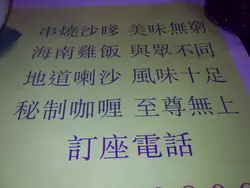 串燒沙嗲 美味無窮
海南雞飯 與眾不同
地道喇沙 風味十足
秘制咖喱 至尊無上
訂座電話